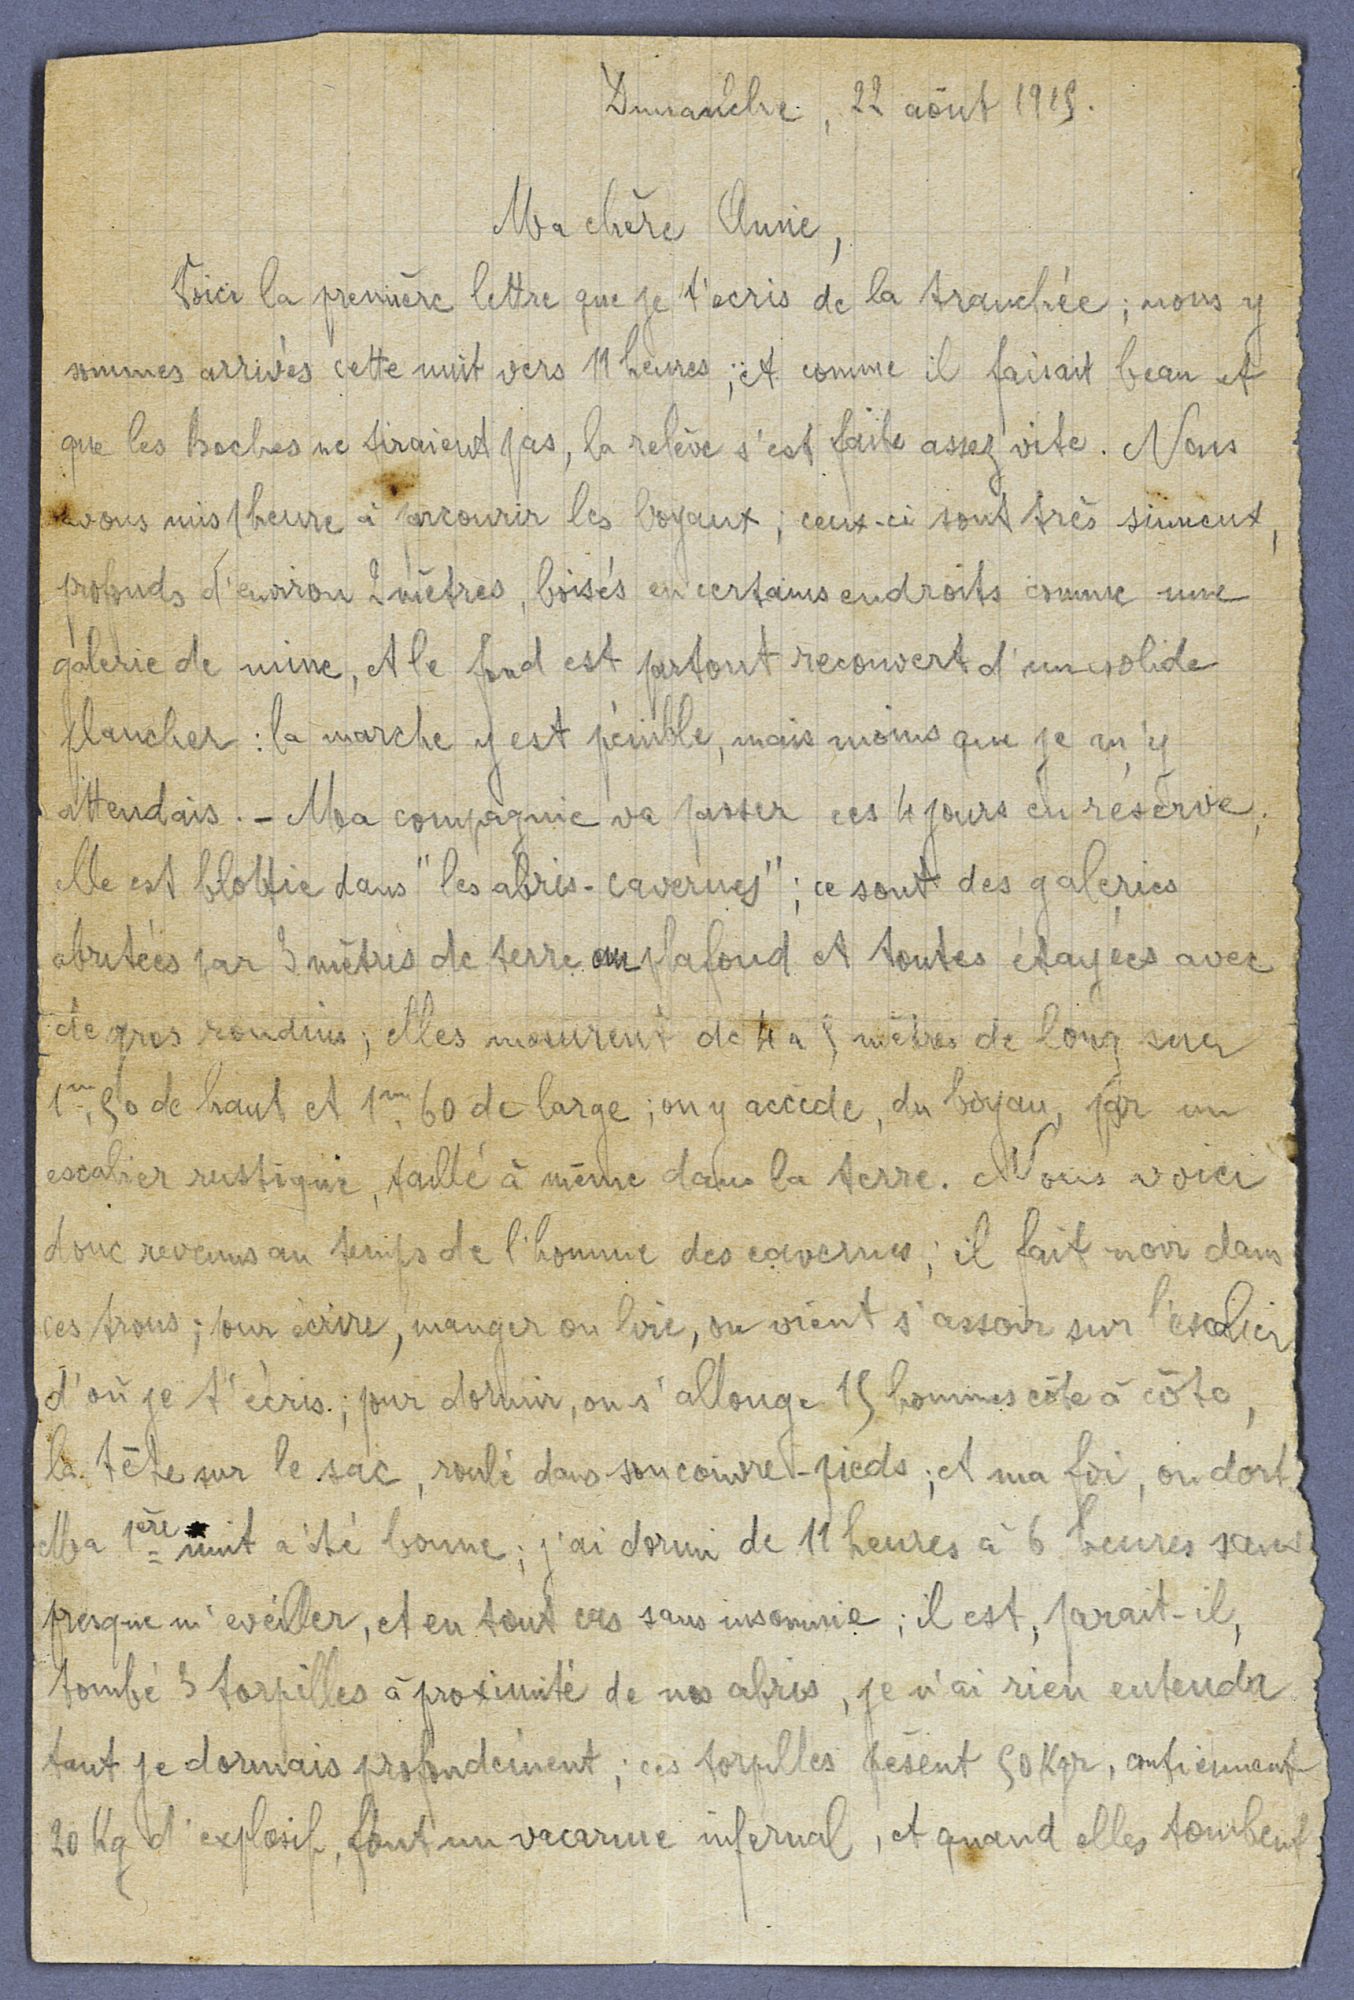 Dimanche, 22 août 1915.
Ma chère Annie,
Voici la première lettre que je t'ecris de la tranchée ; nous y
sommes arrivés cette nuit vers 11 heures ; et comme il faisait beau et
que les boches ne tiraient pas, la relève s'est faite assez vite. Nous
avons mis 1 heure à parcourir les boyaux ; ceux-ci sont très sinueux,
profonds d'environ 2 mètres, boisés en certains endroits comme une
galerie de mine, et le fond est partout recouvert d'un solide
plancher : la marche y est pénible, mais moins que je m'y
attendais. - Ma compagnie va passer ces 4 jours en réserve ;
elle est blottie dans "les abris-cavernes" ; ce sont des galeries
abritées par 3 mètres de terre au plafond et toutes étayées avec
de gros rondins ; elles mesurent de 4 à 5 mètres de long sur
1m,50 de haut et 1m,60 de large ; on y accède, du boyau, par un
escalier rustique, taillé à même dans la terre. Nous voici
donc revenus au temps de l'homme des cavernes ; il fait noir dans
ces trous ; pour écrire, manger ou lire, on vient s'assoir sur l'escalier
d'où je t'écris ; pour dormir, on s'allonge 15 hommes côte à côte,
la tête sur le sac, roulé dans son couvre-pieds ; et ma foi, on dort.
Ma 1ère nuit a été bonne ; j'ai dormi de 11 heures à 6 heures sans
presque m'eveiller, et en tout cas sans insomnie ; il est, parait-il,
tombé 3 torpilles à proximité de nos abris, je n'ai rien entendu
tant je dormais profondément ; ces torpilles pèsent 50 Kgr, contiennent
20 Kg d'explosif, font un vacarme infernal, et quand elles tombent